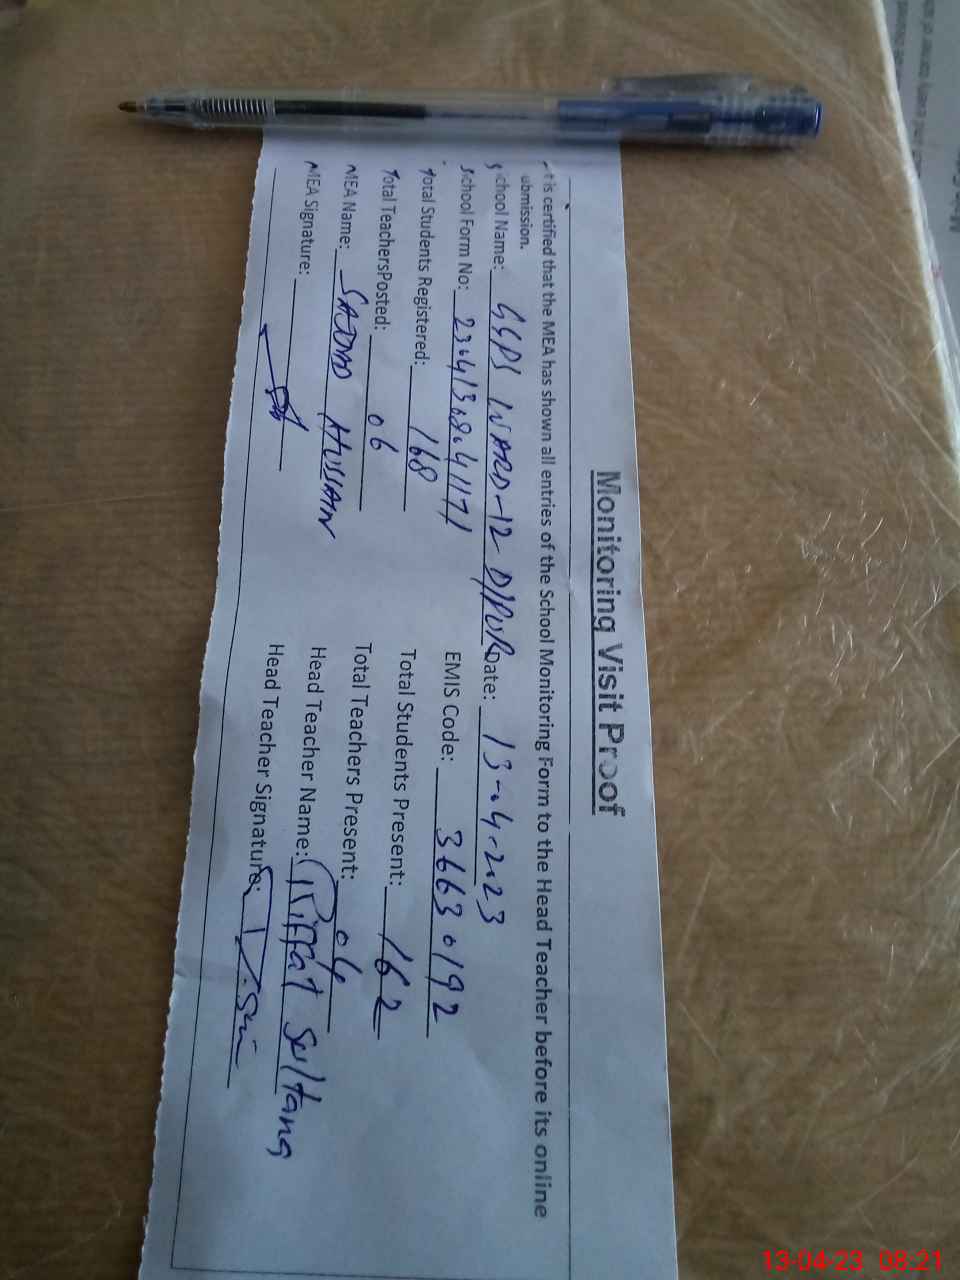 Monitoring Visit Proof
It is certified that the MEA has shown all entries of the School Monitoring Form to the Head Teacher before its online
submission.
School Name: GGPS WARD-12 D/PUR Date: 13-04-2023
School Form No: 23041308041171 EMIS Code: 36630192
Total Students Registered: 168 Total Students Present: 162
Total TeachersPosted: 06 Total Teachers Present: 04
MEA Name: SAJJAD HUSSAIN Head Teacher Name: Riffat Sultana
MEA Signature: Head Teacher Signature:
13-04-23 08:21